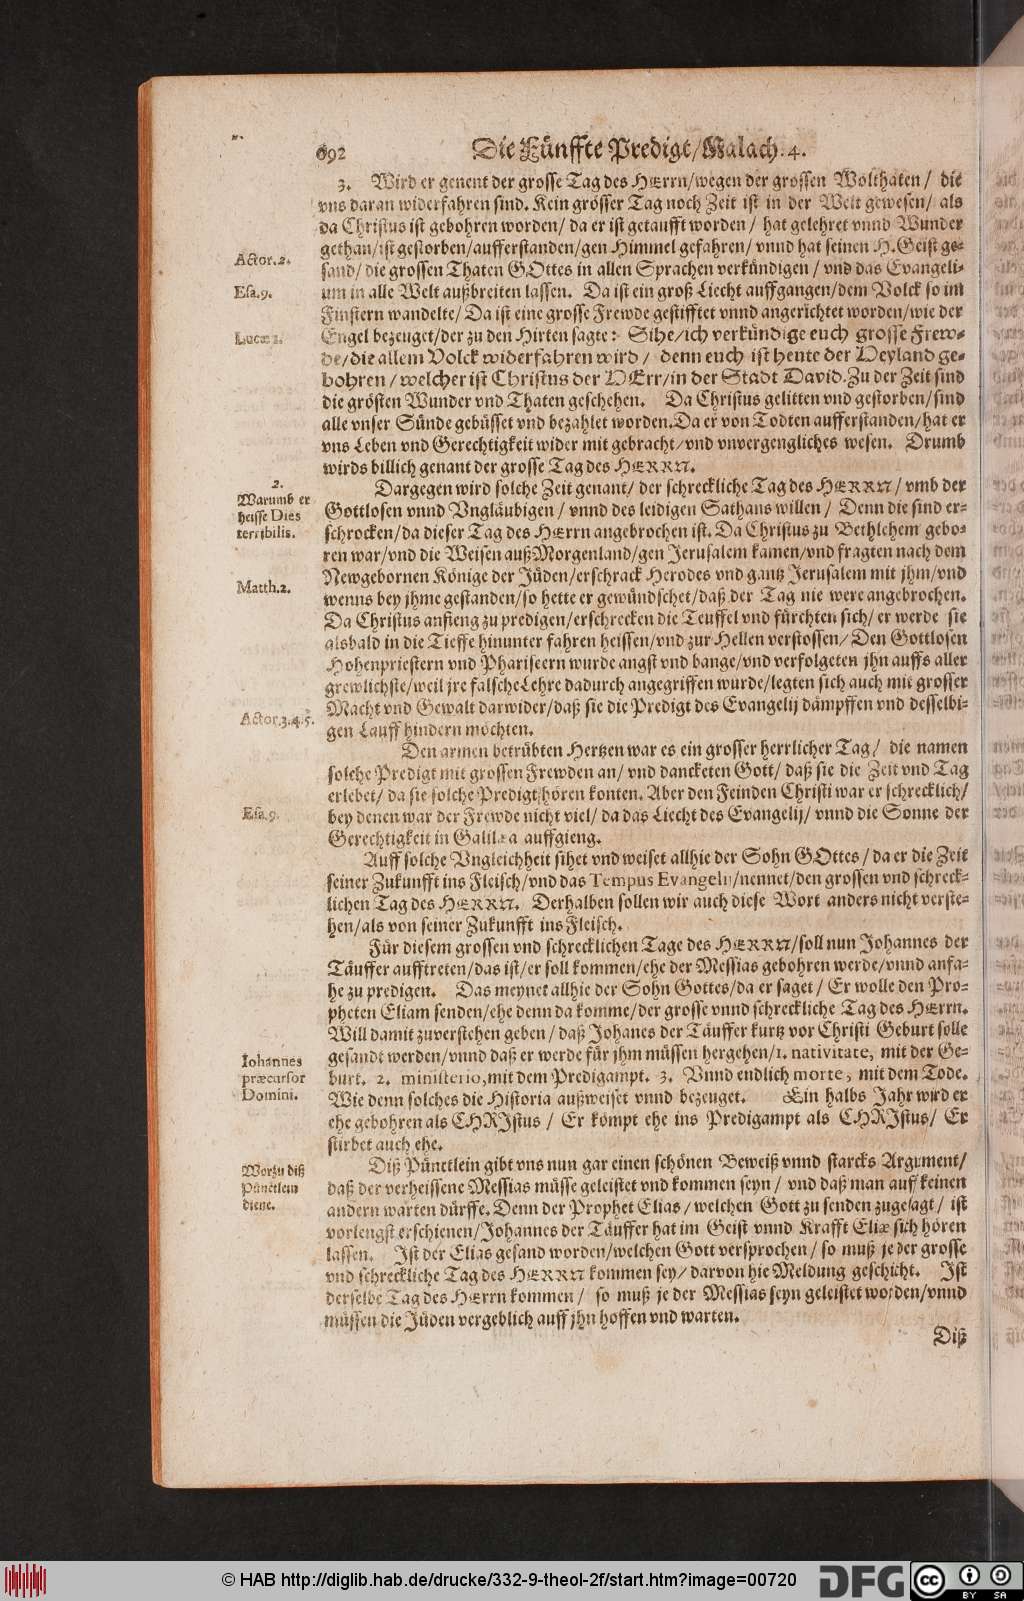 692
Die Fünffte Predigt/ Malach. 4.
3. Wird er genent der grosse Tag des HErrn/wegen der grossen Wolthaten/ die
vns daran widerfahren sind. Kein grösser Tag noch Zeit ist in der Welt gewesen/ als
da Christus ist gebohren worden/ da er ist getaufft worden/ hat gelehret vnnd Wunder
gethan/ist gestorben/aufferstanden/gen Himmel gefahren/ vnnd hat seinen H. Geist ge-
Actor. 2.
sand/ die grossen Thaten GOttes in allen Sprachen verkündigen/ vnd das Evangeli-
Esa. 9.
um in alle Welt außbreiten lassen. Da ist ein groß Liecht auffgangen/dem Volck so im
Finstern wandelte/ Da ist eine grosse Frewde gestifftet vnnd angerichtet worden/wie der
Lucæ 2.
Engel bezeuget/der zu den Hirten sagte: Sihe/ich verkündige euch grosse Frew-
de/die allem Volck widerfahren wird/ denn euch ist heute der Heyland ge-
bohren/welcher ist Christus der HErr/in der Stadt David. Zu der Zeit sind
die grösten Wunder vnd Thaten geschehen. Da Christus gelitten vnd gestorben/sind
alle vnser Sünde gebüsset vnd bezahlet worden. Da er von Todten aufferstanden/hat er
vns Leben vnd Gerechtigkeit wider mit gebracht/vnd vnvergengliches wesen. Drumb
wirds billich genant der grosse Tag des HERRN.
2.
Warumb er
heisse Dies
terribilis.
Dargegen wird solche Zeit genant/ der schreckliche Tag des HERRN/ vmb der
Gottlosen vnnd Vngläubigen/ vnnd des leidigen Sathans willen/ Denn die sind er-
schrocken/da dieser Tag des HErrn angebrochen ist. Da Christus zu Bethlehem gebo-
ren war/vnd die Weisen auß Morgenland/gen Jerusalem kamen/vnd fragten nach dem
Matth. 2.
Newgebornen Könige der Jüden/erschrack Herodes vnd gantz Jerusalem mit jhm/vnd
wenns bey jhme gestanden/so hette er gewündschet/daß der Tag nie were angebrochen.
Da Christus anfieng zu predigen/erschrecken die Teuffel vnd fürchten sich/ er werde sie
alsbald in die Tieffe hinunter fahren heissen/vnd zur Hellen verstossen/ Den Gottlosen
Hohenpriestern vnd Phariseern wurde angst vnd bange/vnd verfolgeten jhn auffs aller
grewlichste/weil jre falsche Lehre dadurch angegriffen wurde/legten sich auch mit grosser
Actor. 3. 4. 5.
Macht vnd Gewalt darwider/daß sie die Predigt des Evangelij dämpffen vnd desselbi-
gen Lauff hindern möchten.
Den armen betrübten Hertzen war es ein grosser herrlicher Tag/ die namen
solche Predigt mit grossen Frewden an/ vnd dancketen Gott/ daß sie die Zeit vnd Tag
erlebet/ da sie solche Predigt hören konten. Aber den Feinden Christi war er schrecklich/
Esa. 9.
bey denen war der Frewde nicht viel/ da das Liecht des Evangelij/ vnnd die Sonne der
Gerechtigkeit in Galilæa auffgieng.
Auff solche Vngleichheit sihet vnd weiset allhie der Sohn GOttes/ da er die Zeit
seiner Zukunfft ins Fleisch/vnd das Tempus Evangelij/nennet/den grossen vnd schreck-
lichen Tag des HERRN. Derhalben sollen wir auch diese Wort anders nicht verste-
hen/als von seiner Zukunfft ins Fleisch.
Für diesem grossen vnd schrecklichen Tage des HERRN/soll nun Johannes der
Täuffer aufftreten/das ist/er soll kommen/ehe der Messias gebohren werde/vnnd anfa-
he zu predigen. Das meynet allhie der Sohn Gottes/da er saget/ Er wolle den Pro-
pheten Eliam senden/ehe denn da komme/der grosse vnnd schreckliche Tag des HErrn.
Will damit zuverstehen geben/ daß Johanes der Täuffer kurtz vor Christi Geburt solle
Iohannes
præcursor
Domini.
gesandt werden/vnnd daß er werde für jhm müssen hergehen/1. nativitate, mit der Ge-
burt. 2. ministerio, mit dem Predigampt. 3. Vnnd endlich morte, mit dem Tode.
Wie denn solches die Historia außweiset vnnd bezeuget. Ein halbs Jahr wird er
ehe gebohren als CHRIstus/ Er kömpt ehe ins Predigampt als CHRIstus/ Er
stirbet auch ehe.
Worzu diß
Pünctlein
diene.
Diß Pünctlein gibt vns nun gar einen schönen Beweiß vnnd starcks Argument/
daß der verheissene Messias müsse geleistet vnd kommen seyn/ vnd daß man auf keinen
andern warten dürffe. Denn der Prophet Elias/welchen Gott zu senden zugesagt/ ist
vorlengst erschienen/Johannes der Täuffer hat im Geist vnnd Krafft Eliæ sich hören
lassen. Ist der Elias gesand worden/welchen Gott versprochen/ so muß je der grosse
vnd schreckliche Tag des HERRN kommen sey/ darvon hie Meldung geschicht. Ist
derselbe Tag des HErrn kommen/ so muß je der Messias seyn geleistet worden/vnnd
müssen die Jüden vergeblich auff jhn hoffen vnd warten.
Diß
© HAB http://diglib.hab.de/drucke/332-9-theol-2f/start.htm?image=00720
DFG
cc
BY SA